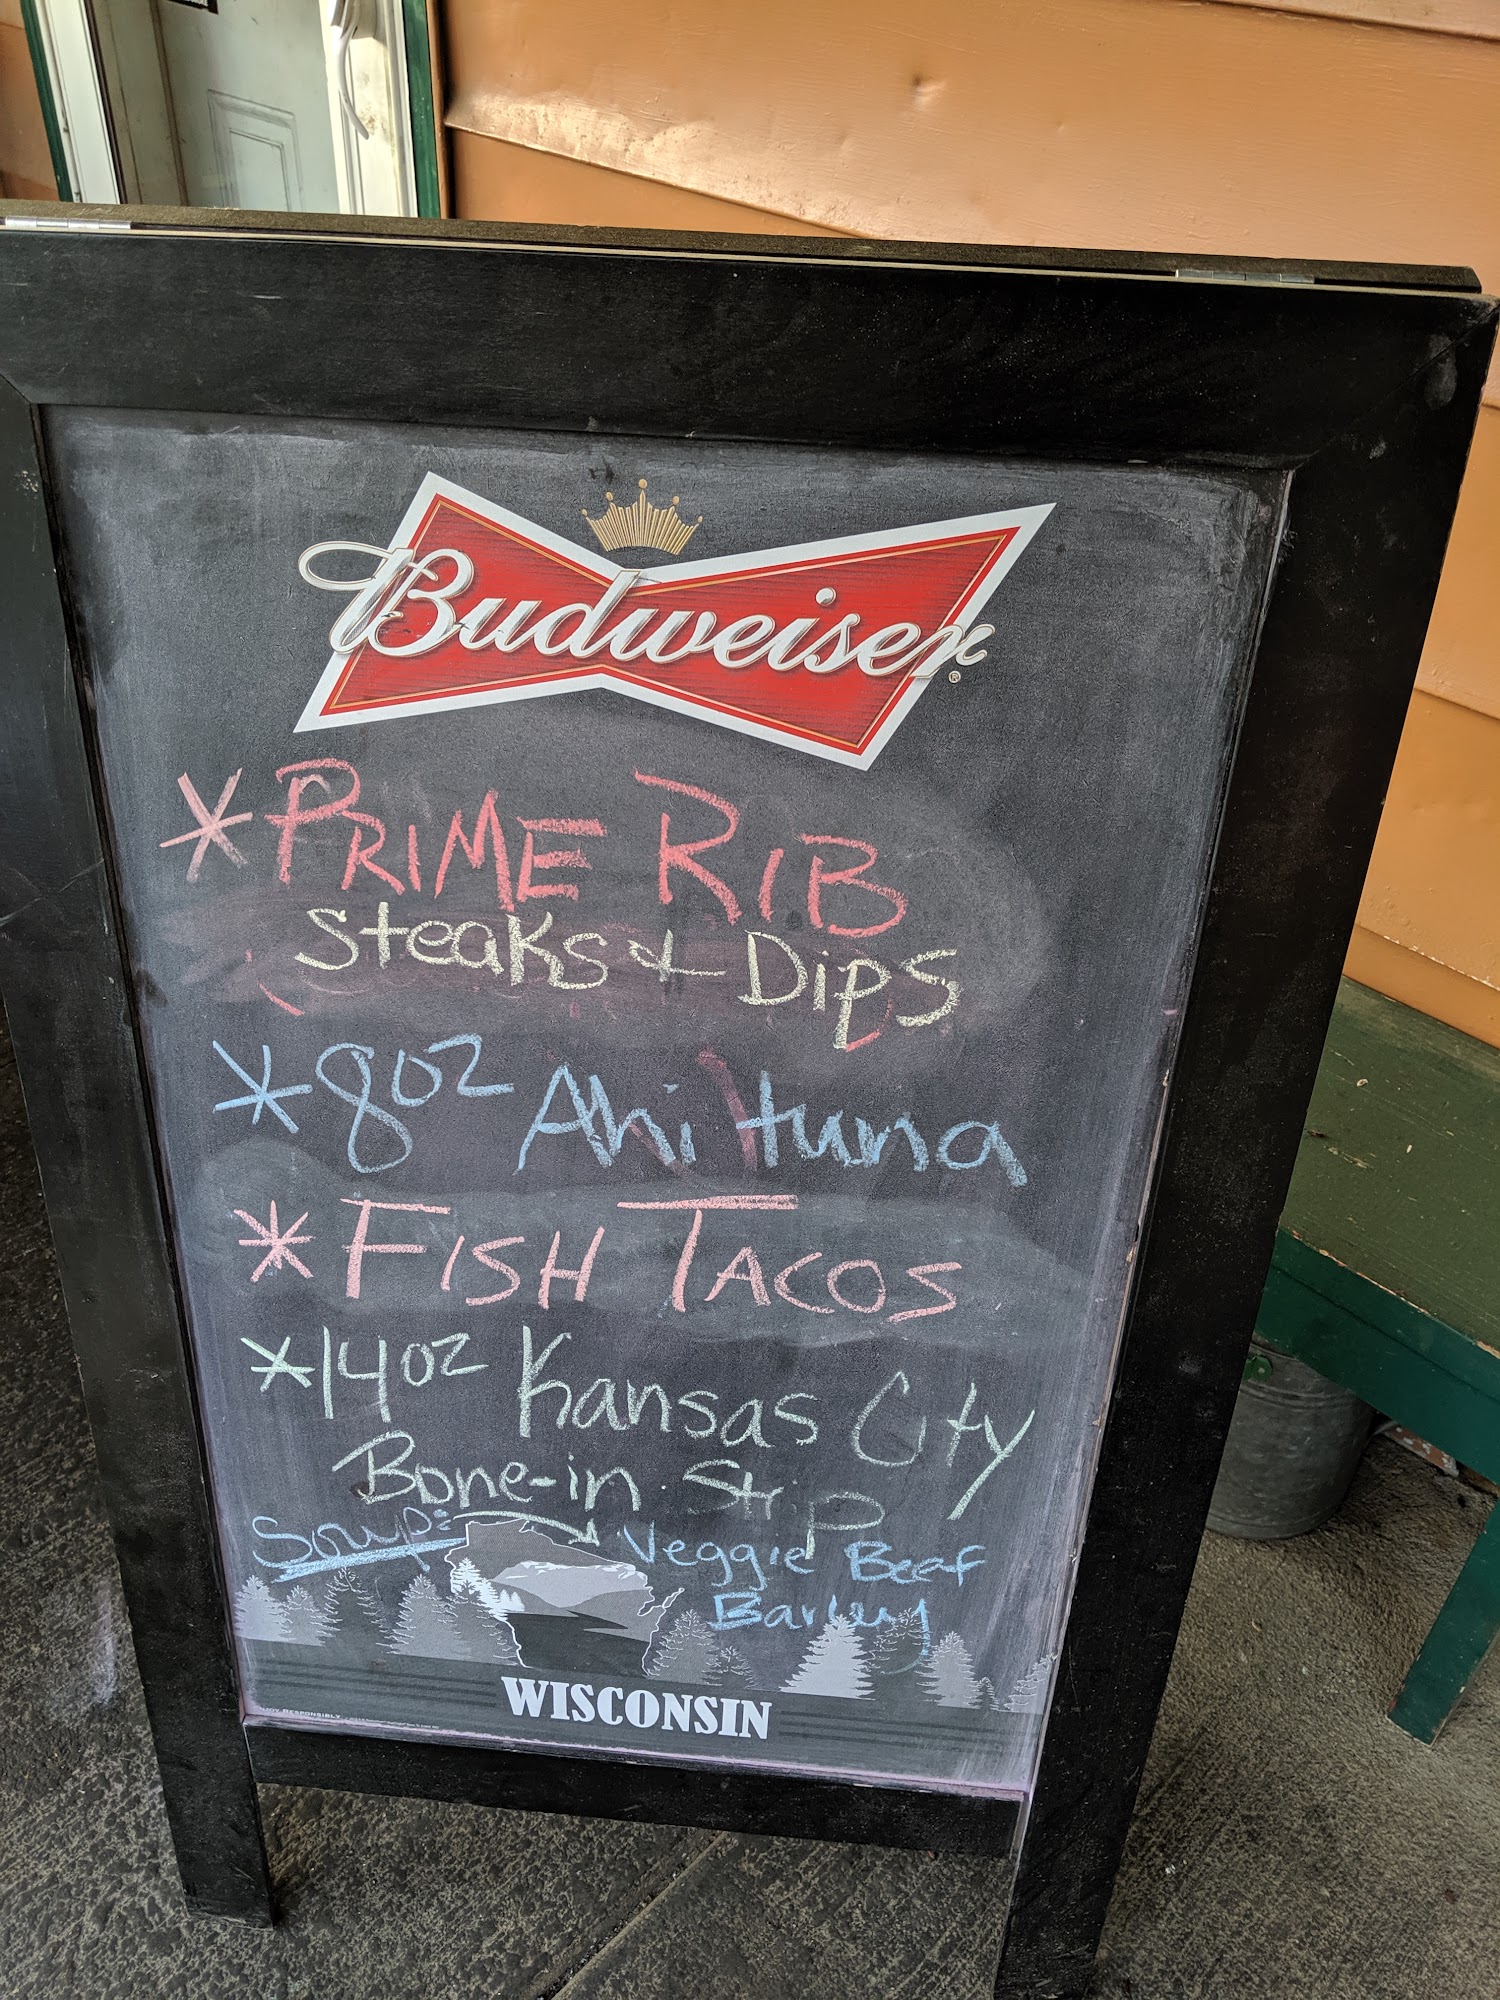 Budweiser
* PRIME RIB
Steaks & Dips
* 8oz Ahi tuna
* FISH TACOS
* 14oz Kansas City
Bone-in Strip
Soup: Veggie Beef
Barley
WISCONSIN